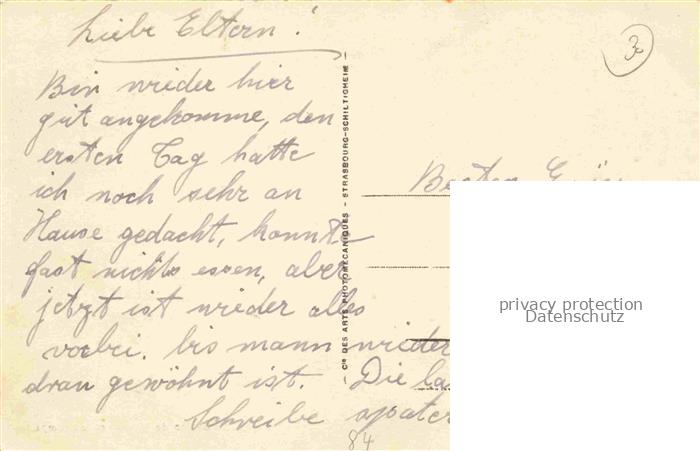 Liebe Eltern!
3c
Bin wieder hier
gut angekomme, den
ersten Tag hatte
ich noch sehr an
Hause gedacht, konnte
fast nichts essen, aber
jetzt ist wieder alles
vorbei. bis mann wieder
dran gewöhnt ist. Die
Schreibe spater
84
Cie DES ARTS PHOTOMÉCANIQUES - STRASBOURG-SCHILTIGHEIM
privacy protection
Datenschutz